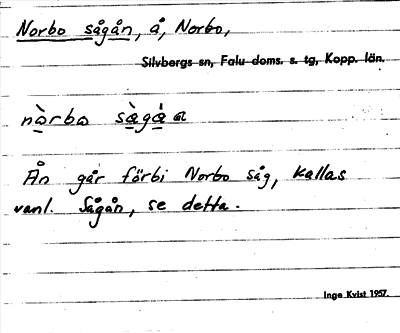 Norbo sågån, å, Norbo,
Silvbergs sn, Falu doms. s. tg, Kopp. län.
Ån går förbi Norbo såg, kallas
vanl. Sågån, se detta.
Inge Kvist 1957.